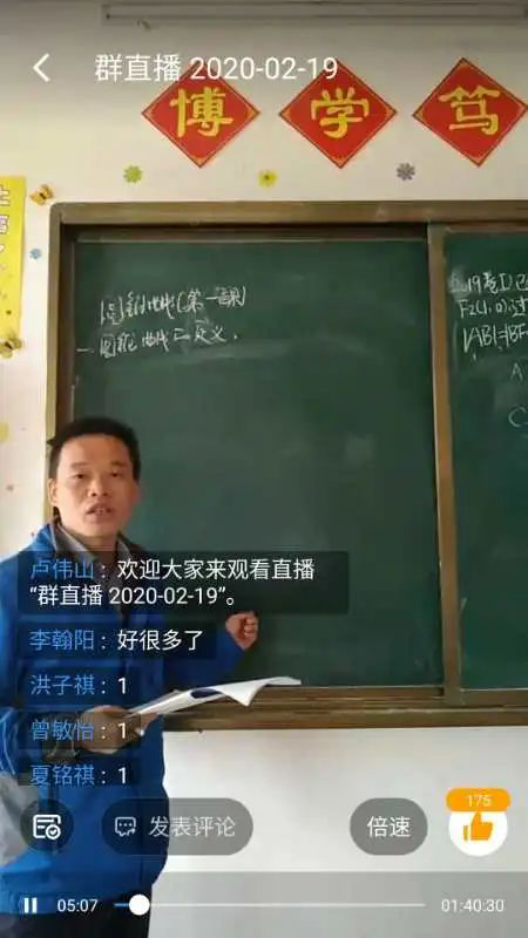 群直播 2020-02-19
博 学 笃
圆锥曲线(第一课)
一 圆锥曲线定义.
F₂(1,0)过
A
C
卢伟山：欢迎大家来观看直播
“群直播 2020-02-19”。
李翰阳：好很多了
洪子祺：1
曾敏怡：1
夏铭祺：1
发表评论
倍速
175
05:07
01:40:30